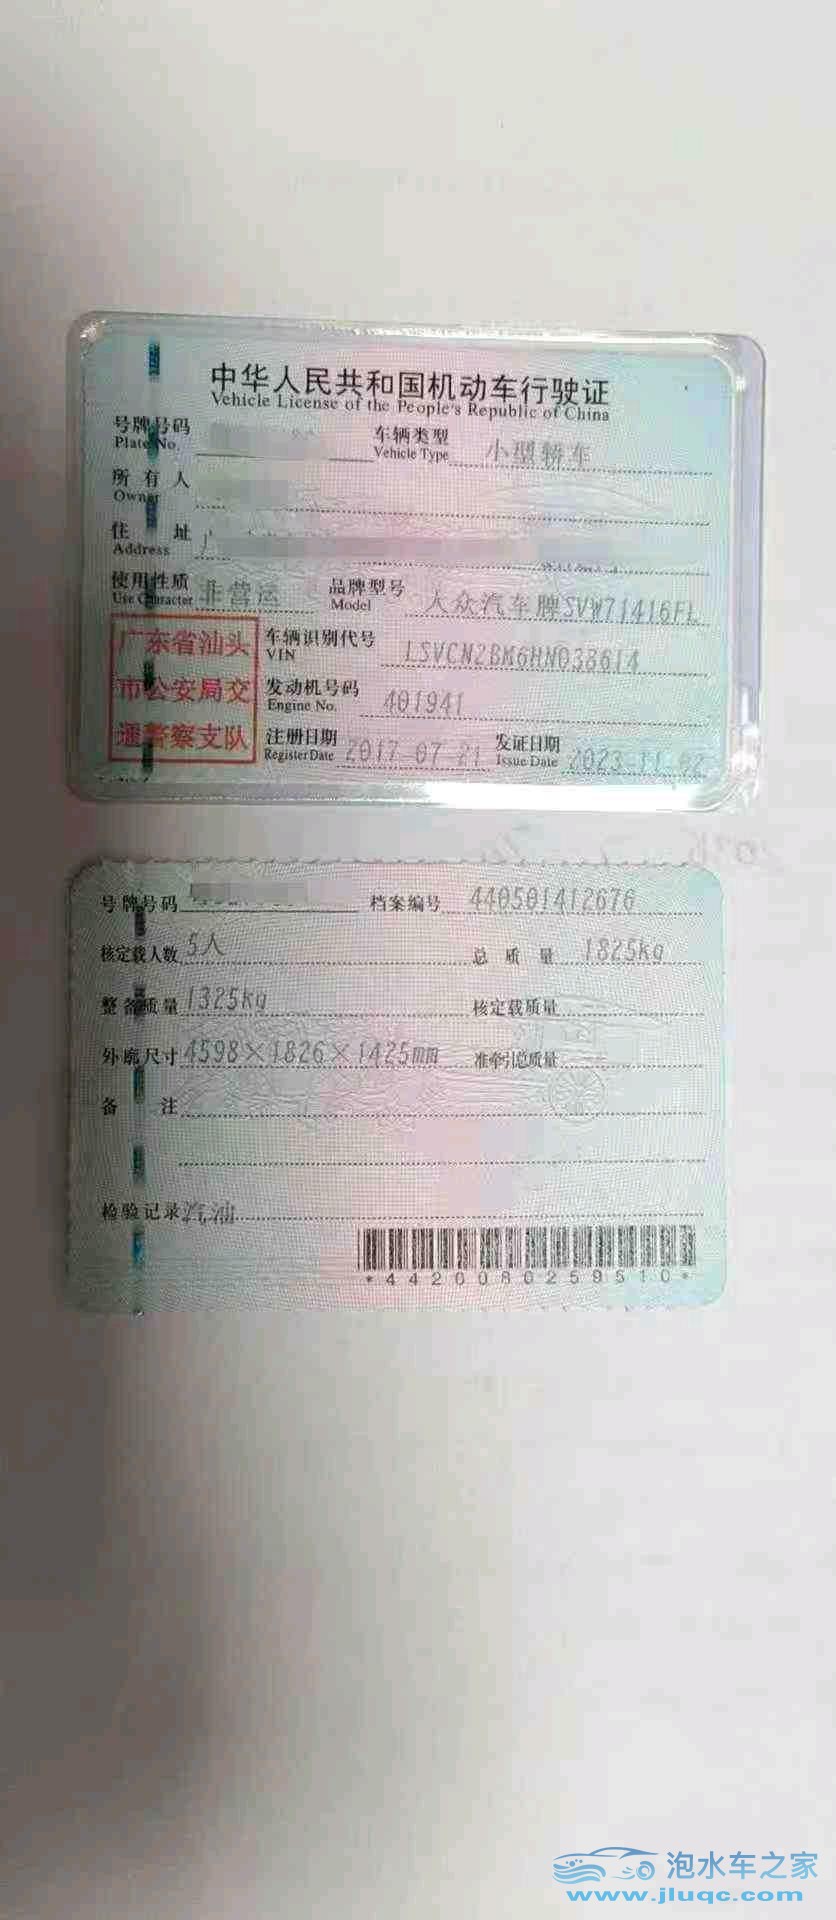 中华人民共和国机动车行驶证
Vehicle License of the People's Republic of China
号牌号码 车辆类型 小型轿车
Plate No. Vehicle Type
所有人
Owner
住址
Address
使用性质 非营运 品牌型号 大众汽车牌SVW71416FL
Use Character Model
广东省汕头
市公安局交
通警察支队
车辆识别代号 LSVCN2BM6HN038614
VIN
发动机号码 401941
Engine No.
注册日期 2017-07-21 发证日期 2023-11-02
Register Date Issue Date
号牌号码 档案编号 440501412676
核定载人数 5人 总质量 1825kg
整备质量 1325kg 核定载质量
外廓尺寸 4598×1826×1425mm 准牵引总质量
备注
检验记录 汽油
*4420080259510*
泡水车之家
www.jluqc.com